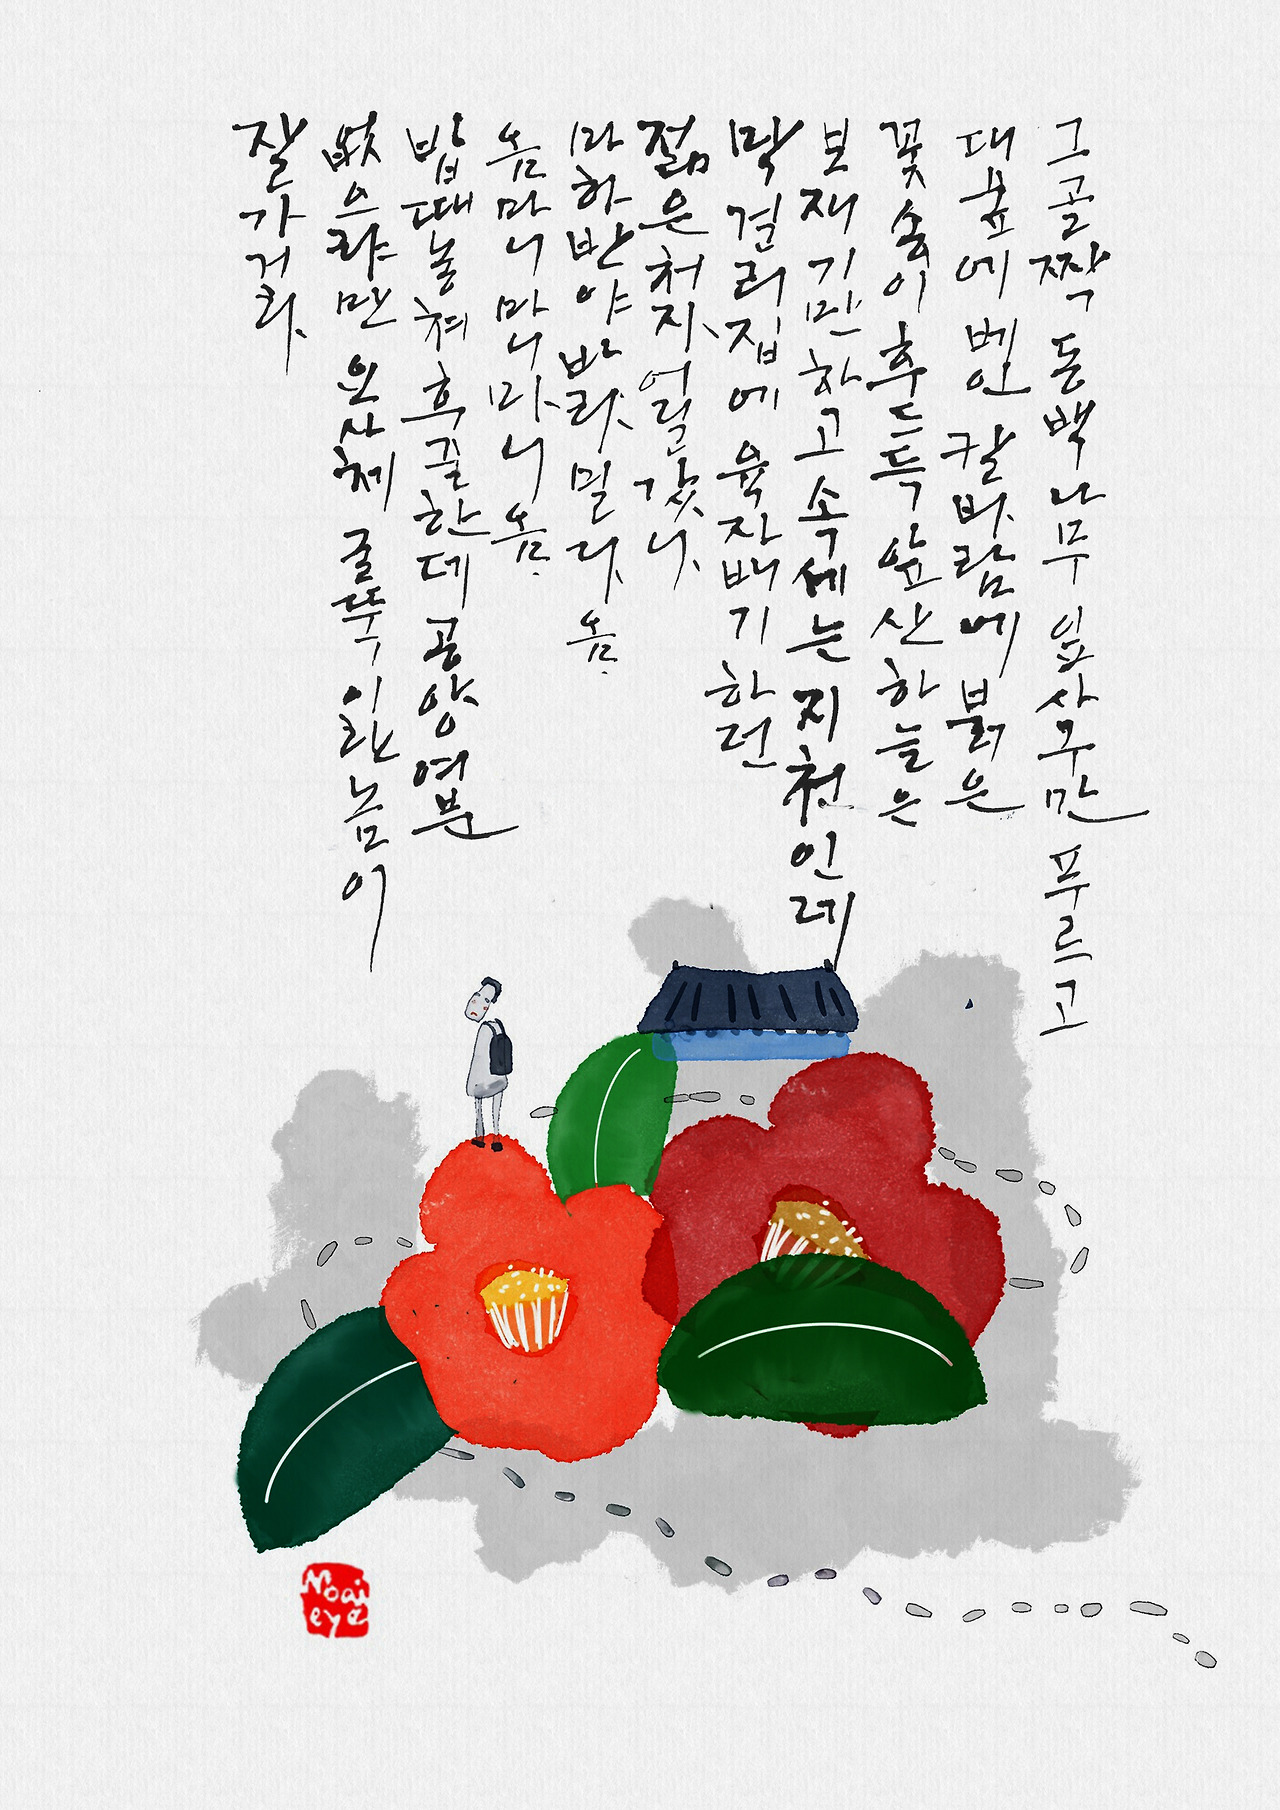 그 골짝 돈백나무 잎사구만 푸르고
대숲에 베인 칼바람에 붉은
꽃송이 후드득 앞산 하늘은
보재기만 하고 속세는 지천인데
막걸리집에 육자배기 하던
젊은 처자 어딜 갔나.
마하반야바라밀다 옴.
옴마니마니마니 옴.
밥때 놓쳐 후줄한데 공양 여분
없으랴만 요사체 굴뚝이란 놈이
잘 가거라.
Moai
eye